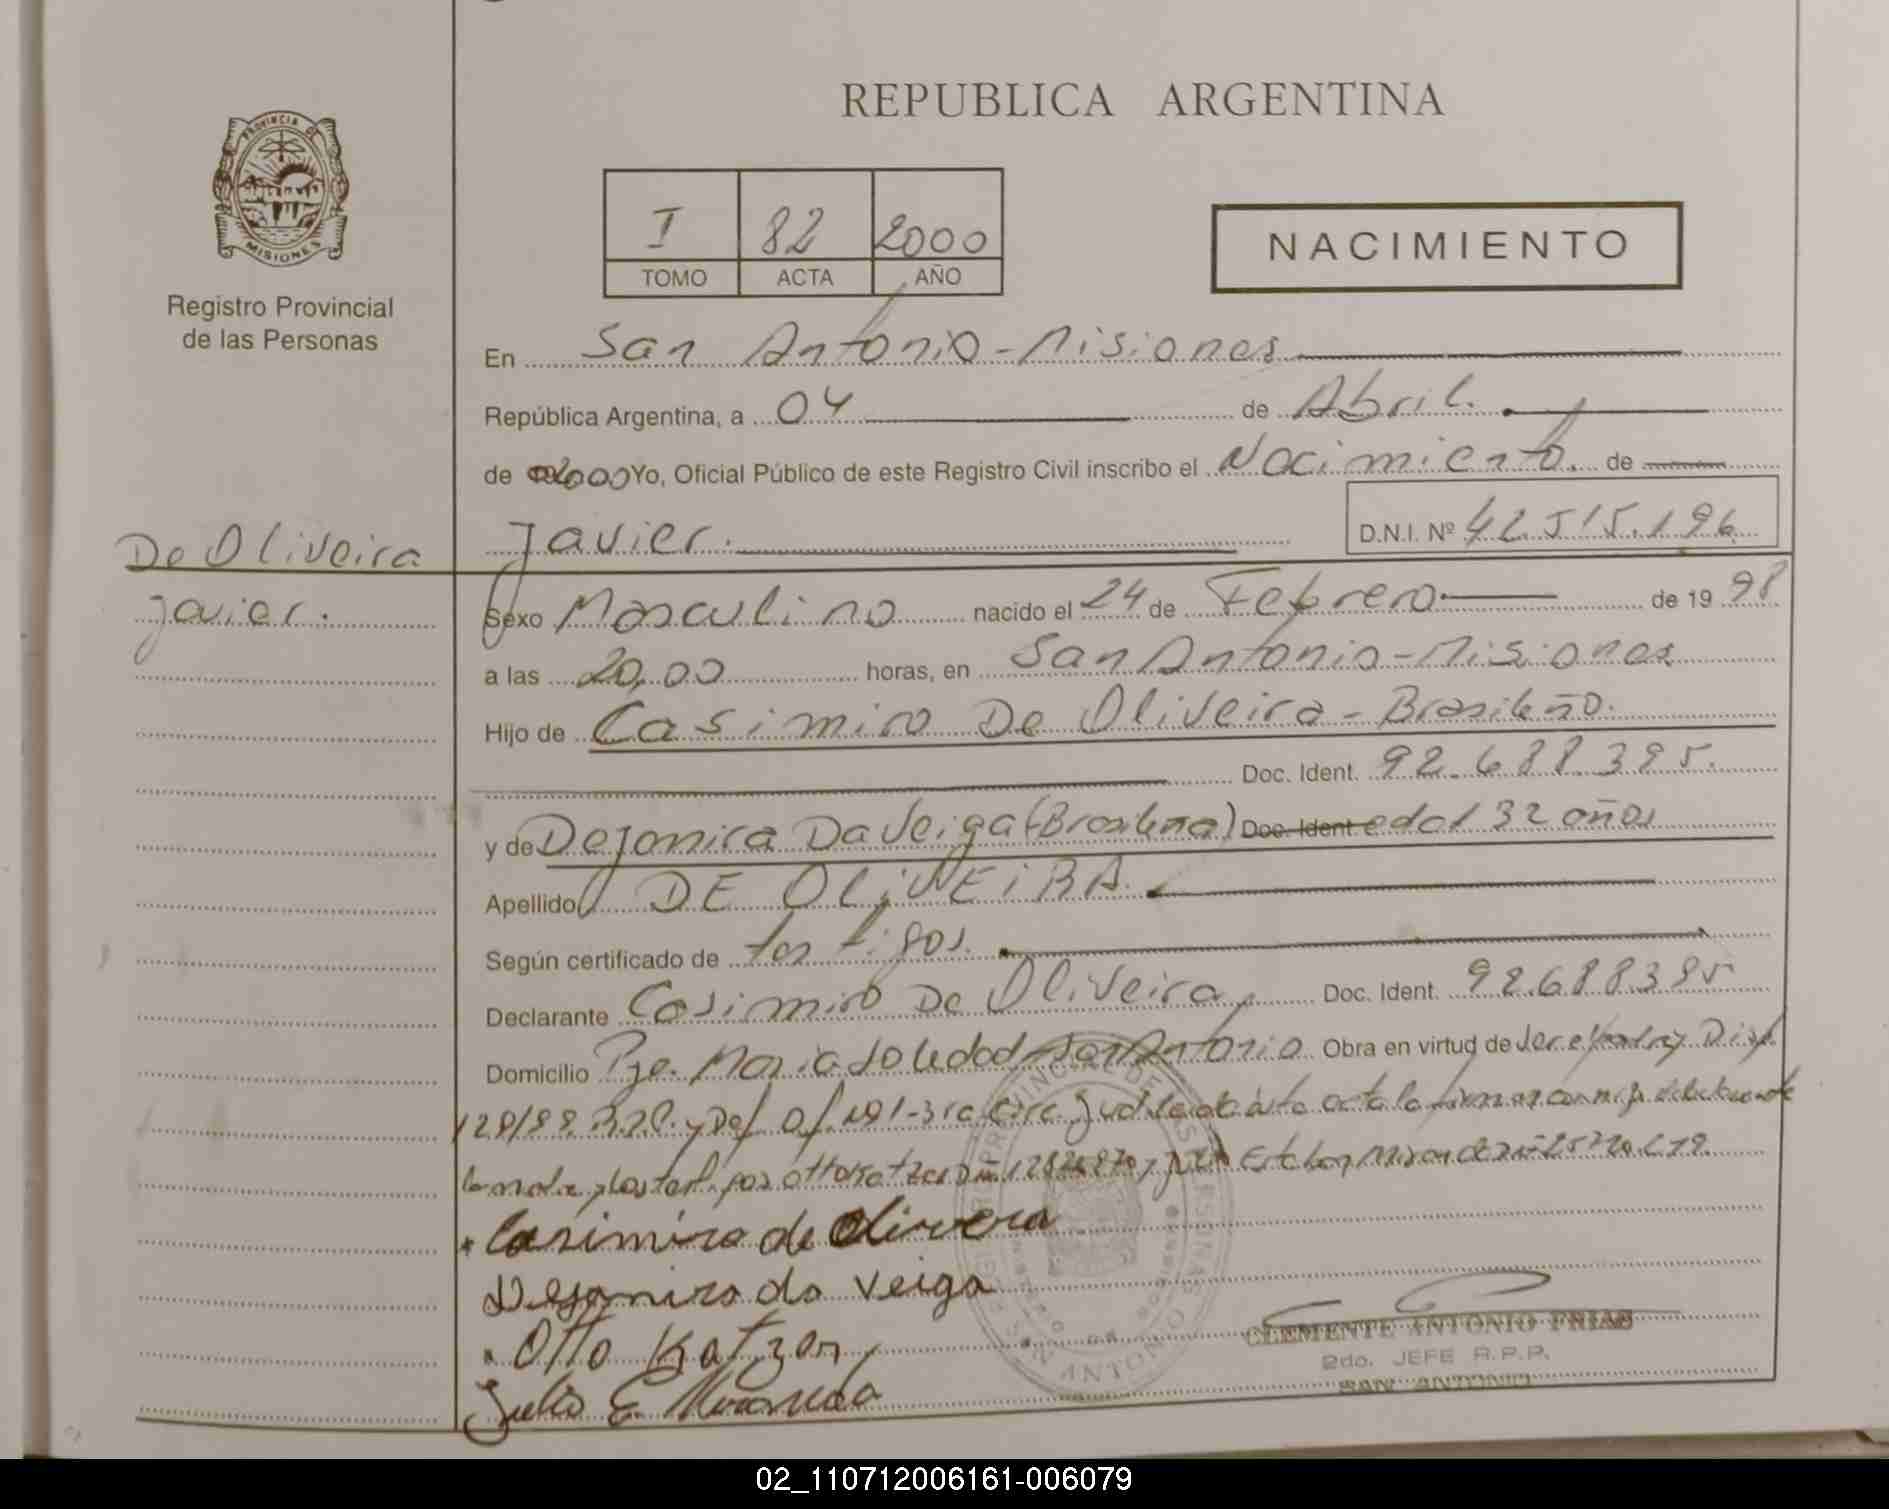 REPUBLICA ARGENTINA
PROVINCIA DE
MISIONES
Registro Provincial
de las Personas
I 82 2000
TOMO ACTA AÑO
NACIMIENTO
En San Antonio - Misiones
República Argentina, a 04 de Abril.
de 2000 Yo, Oficial Público de este Registro Civil inscribo el Nacimiento. de
De Oliveira Javier. D.N.I. Nº 42.515.196
Javier.
Sexo Masculino nacido el 24 de Febrero de 19 98
a las 20,00 horas, en San Antonio - Misiones
Hijo de Casimiro De Oliveira - Brasileño.
Doc. Ident. 92.688.395.
y de Dejanira Da Veiga (Brasileña) Doc. Ident edad 32 años
Apellido DE OLIVEIRA.
Según certificado de testigos.
Declarante Casimiro De Oliveira, Doc. Ident. 92.688395
Domicilio Pje. Maria Soledad San Antonio Obra en virtud de
la madre y los test. por Otto Katzer
Casimiro de Olivera
Dejanira da Veiga
Otto Katzer
Julio E. Miranda
CLEMENTE ANTONIO FRIAS
2do. JEFE R.P.P.
SAN ANTONIO
02_110712006161-006079